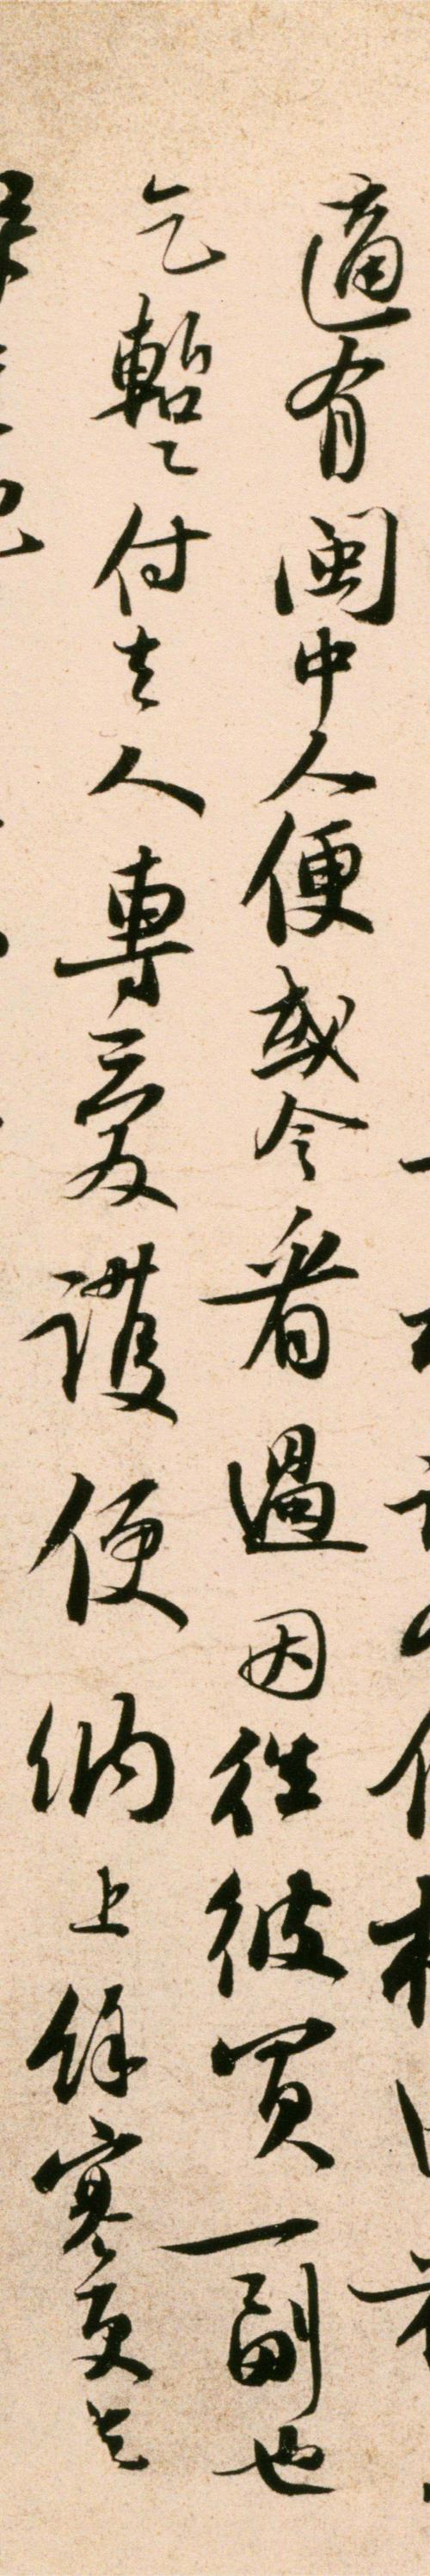 適有閩中人便或令看過因往彼買一副也
乞暫付去人專愛護便納上餘寒更乞